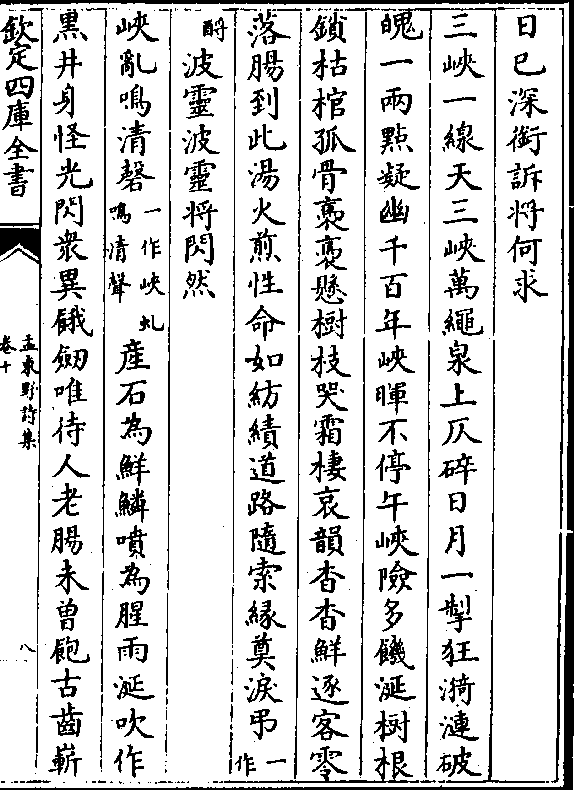 日已深銜訴將何求
三峽一線天三峽萬繩泉上仄碎日月一掣狂漪漣破
魄一兩點凝幽千百年峽暉不停午峽險多饑涎樹根
鎖枯棺孤骨褭褭懸樹枝哭霜棲哀韻杳杳鮮逐客零
落腸到此湯火煎性命如紡績道路隨索緣奠淚弔一作
酹波靈波靈將閃然
峽亂鳴清磬一作峽虬鳴清聲產石為鮮鱗噴為腥雨涎吹作
黒井身怪光閃衆異餓劒唯待人老腸未曾飽古齒嶄
欽定四庫全書
孟東野詩集
卷十
八